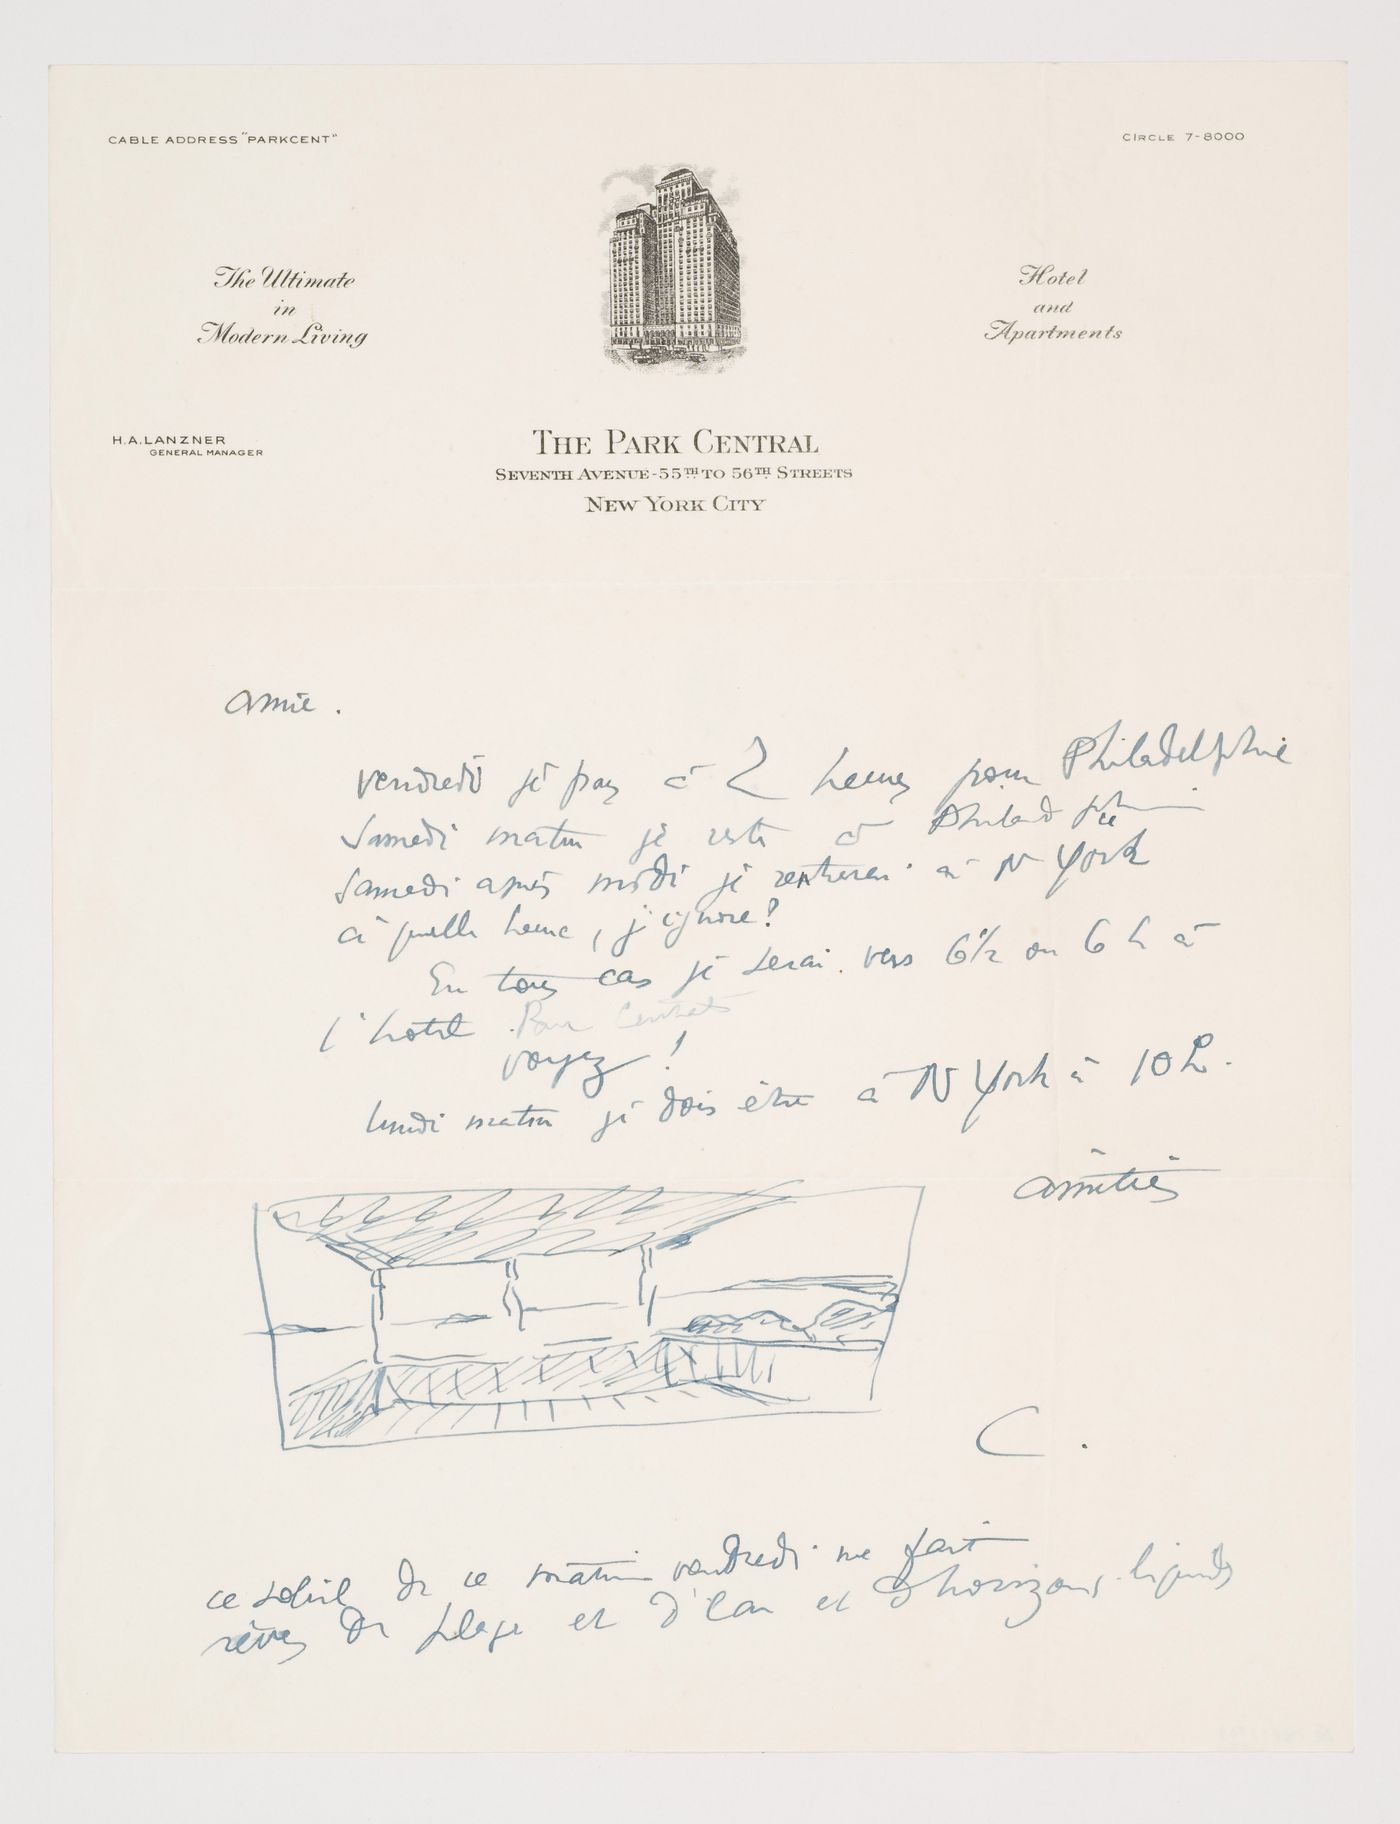 CABLE ADDRESS "PARKCENT"
CIRCLE 7-8000
The Ultimate
in
Modern Living
Hotel
and
Apartments
H.A. LANZNER
GENERAL MANAGER
THE PARK CENTRAL
SEVENTH AVENUE - 55TH TO 56TH STREETS
NEW YORK CITY
amie.
vendredi je pars à 2 heures pour Philadelphie
Samedi matin je reste à
Samedi après midi je rentrerai à N York
à quelle heure, j'ignore?
En tous cas je serai vers 6½ ou 6 h à
l'hotel Park Central
voyez!
lundi matin je dois être à N York à 10 h.
amitiés
C.
ce soleil de ce matin vendredi me fait
rêver de plage et d'eau et d'horizons liquides